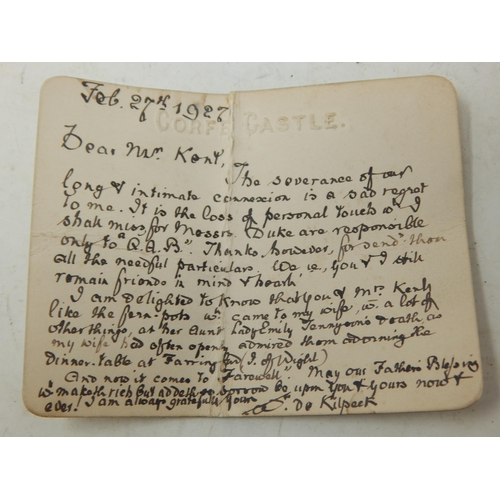 Feb. 27th 1927
CORFE CASTLE.
Dear Mr. Kent,
The severance of our
long & intimate connexion is a sad regret
to me. It is the loss of personal touch wh. I
shall miss for Messrs. Duke are responsible
only to "Q.A.B". Thanks, however, for send'g them
all the needful particulars. We, ie, you & I still
remain friends in mind & heart.
I am delighted to know that you & Mrs. Kent
like the fern-pots wh. came to my wife, w. a lot of
other things, at her Aunt Lady Emily Tennyson's death, as
my wife had often openly admired them adorning the
Dinner-table at Farringford (I. of Wight)
And now it comes to "Farewell". May our Father's Blessing
wh. maketh rich but addeth no sorrow be upon You & yours now &
ever. I am always gratefully yours
De Kilpeck